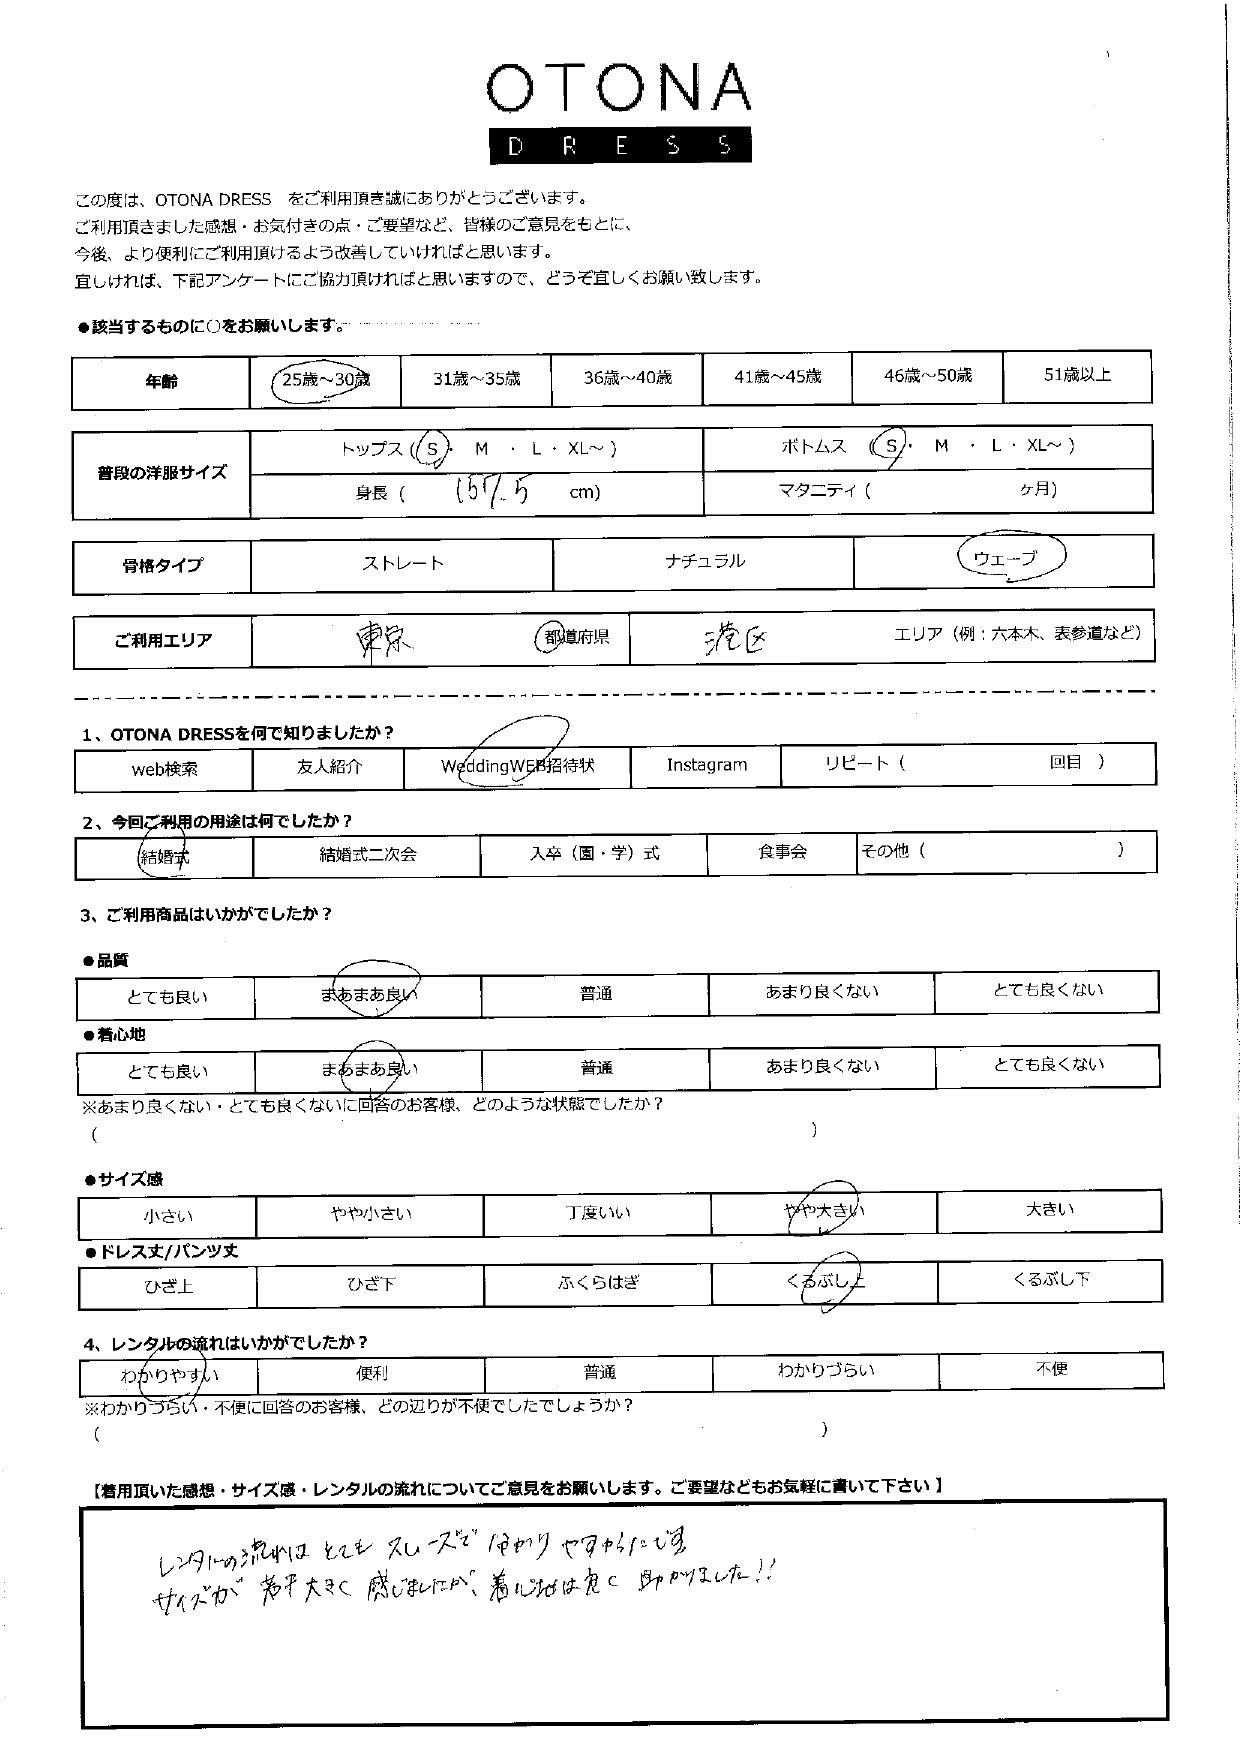 OTONA
DRESS
この度は、OTONA DRESS をご利用頂き誠にありがとうございます。
ご利用頂きました感想・お気付きの点・ご要望など、皆様のご意見をもとに、
今後、より便利にご利用頂けるよう改善していければと思います。
宜しければ、下記アンケートにご協力頂ければと思いますので、どうぞ宜しくお願い致します。
●該当するものに○をお願いします。
年齢 25歳～30歳 31歳～35歳 36歳～40歳 41歳～45歳 46歳～50歳 51歳以上
普段の洋服サイズ トップス ( S ・ M ・ L ・ XL～ ) ボトムス ( S ・ M ・ L ・ XL～ )
身長 ( 157.5 cm) マタニティ ( ヶ月)
骨格タイプ ストレート ナチュラル ウェーブ
ご利用エリア 東京 都道府県 港区 エリア（例：六本木、表参道など）
1、OTONA DRESSを何で知りましたか？
web検索 友人紹介 WeddingWEB招待状 Instagram リピート（ 回目 ）
2、今回ご利用の用途は何でしたか？
結婚式 結婚式二次会 入卒（園・学）式 食事会 その他（ ）
3、ご利用商品はいかがでしたか？
●品質
とても良い まあまあ良い 普通 あまり良くない とても良くない
●着心地
とても良い まあまあ良い 普通 あまり良くない とても良くない
※あまり良くない・とても良くないに回答のお客様、どのような状態でしたか？
( )
●サイズ感
小さい やや小さい 丁度いい やや大きい 大きい
●ドレス丈/パンツ丈
ひざ上 ひざ下 ふくらはぎ くるぶし上 くるぶし下
4、レンタルの流れはいかがでしたか？
わかりやすい 便利 普通 わかりづらい 不便
※わかりづらい・不便に回答のお客様、どの辺りが不便でしたでしょうか？
( )
【着用頂いた感想・サイズ感・レンタルの流れについてご意見をお願いします。ご要望などもお気軽に書いて下さい 】
レンタルの流れは とても スムーズで 分かり やすかったです
サイズが 若干 大きく 感じましたが、着心地は良く 助かりました!!